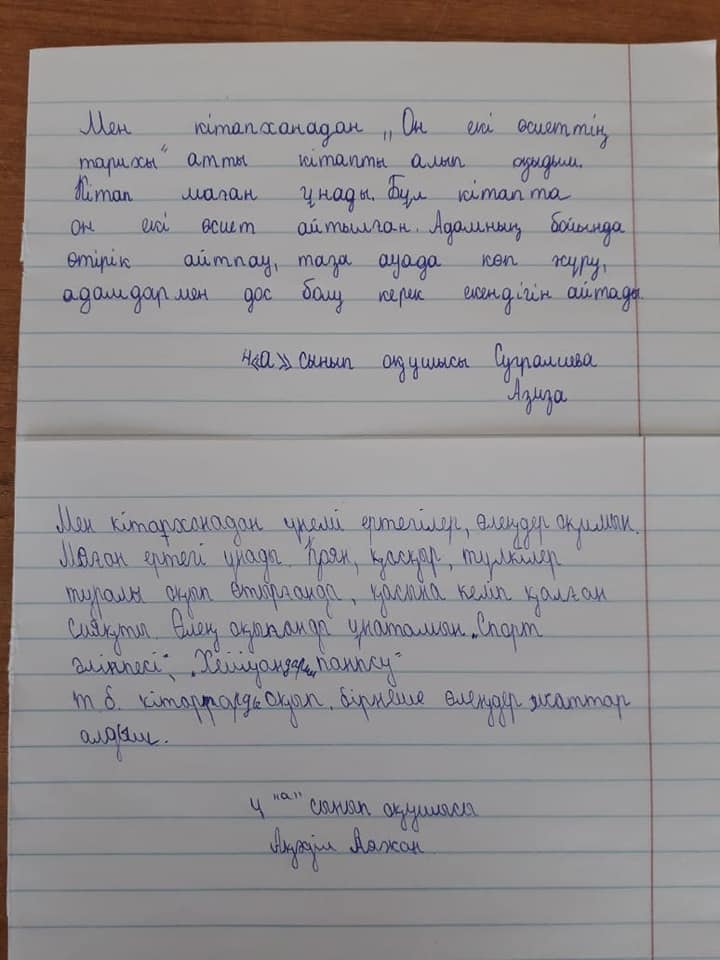 Мен кітапханадан „Он екі өсиеттің
тарихы" атты кітапты алып оқыдым.
Кітап маған ұнады. Бұл кітапта
он екі өсиет айтылған. Адамның бойында
өтірік айтпау, таза ауада көп жүру,
адамдармен дос болу керек екендігін айтады.
4 «а» сынып оқушысы Сугралиева
Азиза
Мен кітапханадан үнемі ертегілер, өлеңдер оқимын.
Маған ертегі ұнады. Қоян, қасқыр, түлкілер
туралы оқып отырғанда, қасына келіп қалған
сияқты. Өлең оқығанды ұнатамын. „Спорт
әліппесі",
т.б. кітаптарды оқып, бірнеше өлеңдер жаттар
алдым.
4 "а" сынып оқушысы
Ақәділ Аяжан